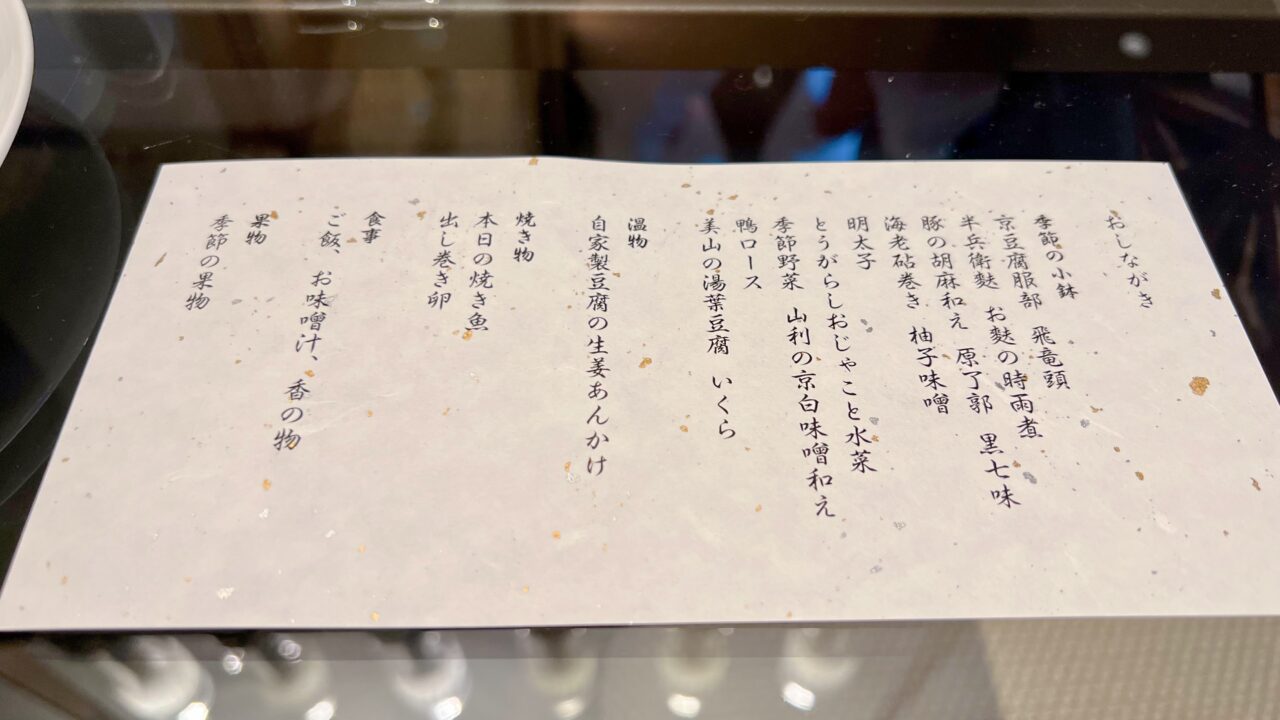 おしながき
季節の小鉢
京豆腐服部　飛竜頭
半兵衛麩　お麩の時雨煮
豚の胡麻和え　原了郭　黒七味
海老砧巻き　柚子味噌
明太子
とうがらしおじゃこと水菜
季節野菜　山利の京白味噌和え
鴨ロース
美山の湯葉豆腐　いくら
温物
自家製豆腐の生姜あんかけ
焼き物
本日の焼き魚
出し巻き卵
食事
ご飯、お味噌汁、香の物
果物
季節の果物